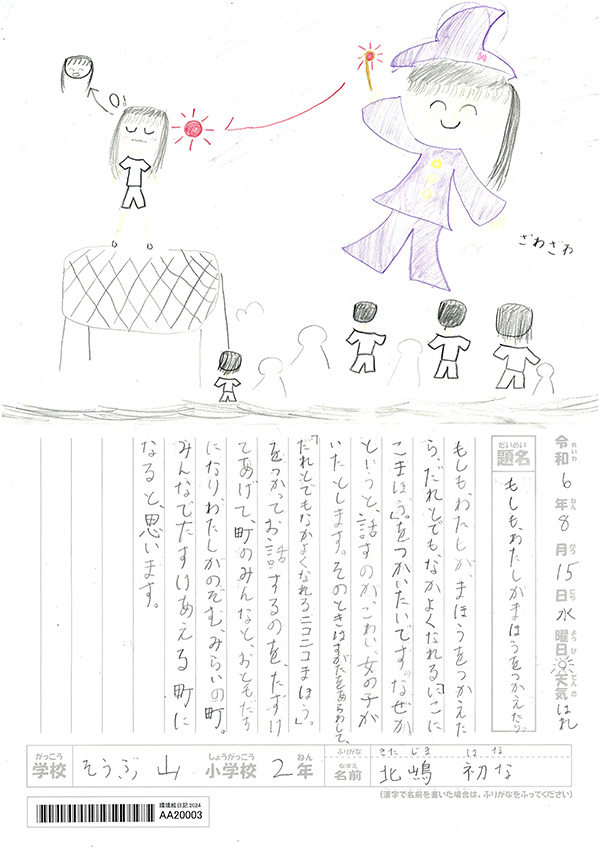 ざわざわ
令和6年8月15日水曜日天気はれ
れいわ ねん がつ にち ようび てんき
だいめい
題名
もしも、わたしがまほうをつかえたら。
もしも、わたしが、まほうをつかえた
ら、「だれとでも、なかよくなれるニコニ
こまほう。」をつかいたいです。なぜか
というと、話すのが、こわい、女の子が
いたとします。そのときはすがたをあらわして、
「だれとでもなかよくなれるニコニコまほう。」
をつかってお話するのを、たすけ
てあげて、町のみんなと、おともだち
になり、わたしがのぞむ、みらいの町。
みんなでたすけあえる町に
なると、思います。
がっこう しょうがっこう ねん
学校 そうぶ山 小学校 2年
ふりがな きたじま はな
なまえ
名前 北嶋 初な
(漢字で名前を書いた場合は、ふりがなをふってください)
環境絵日記2024
AA20003